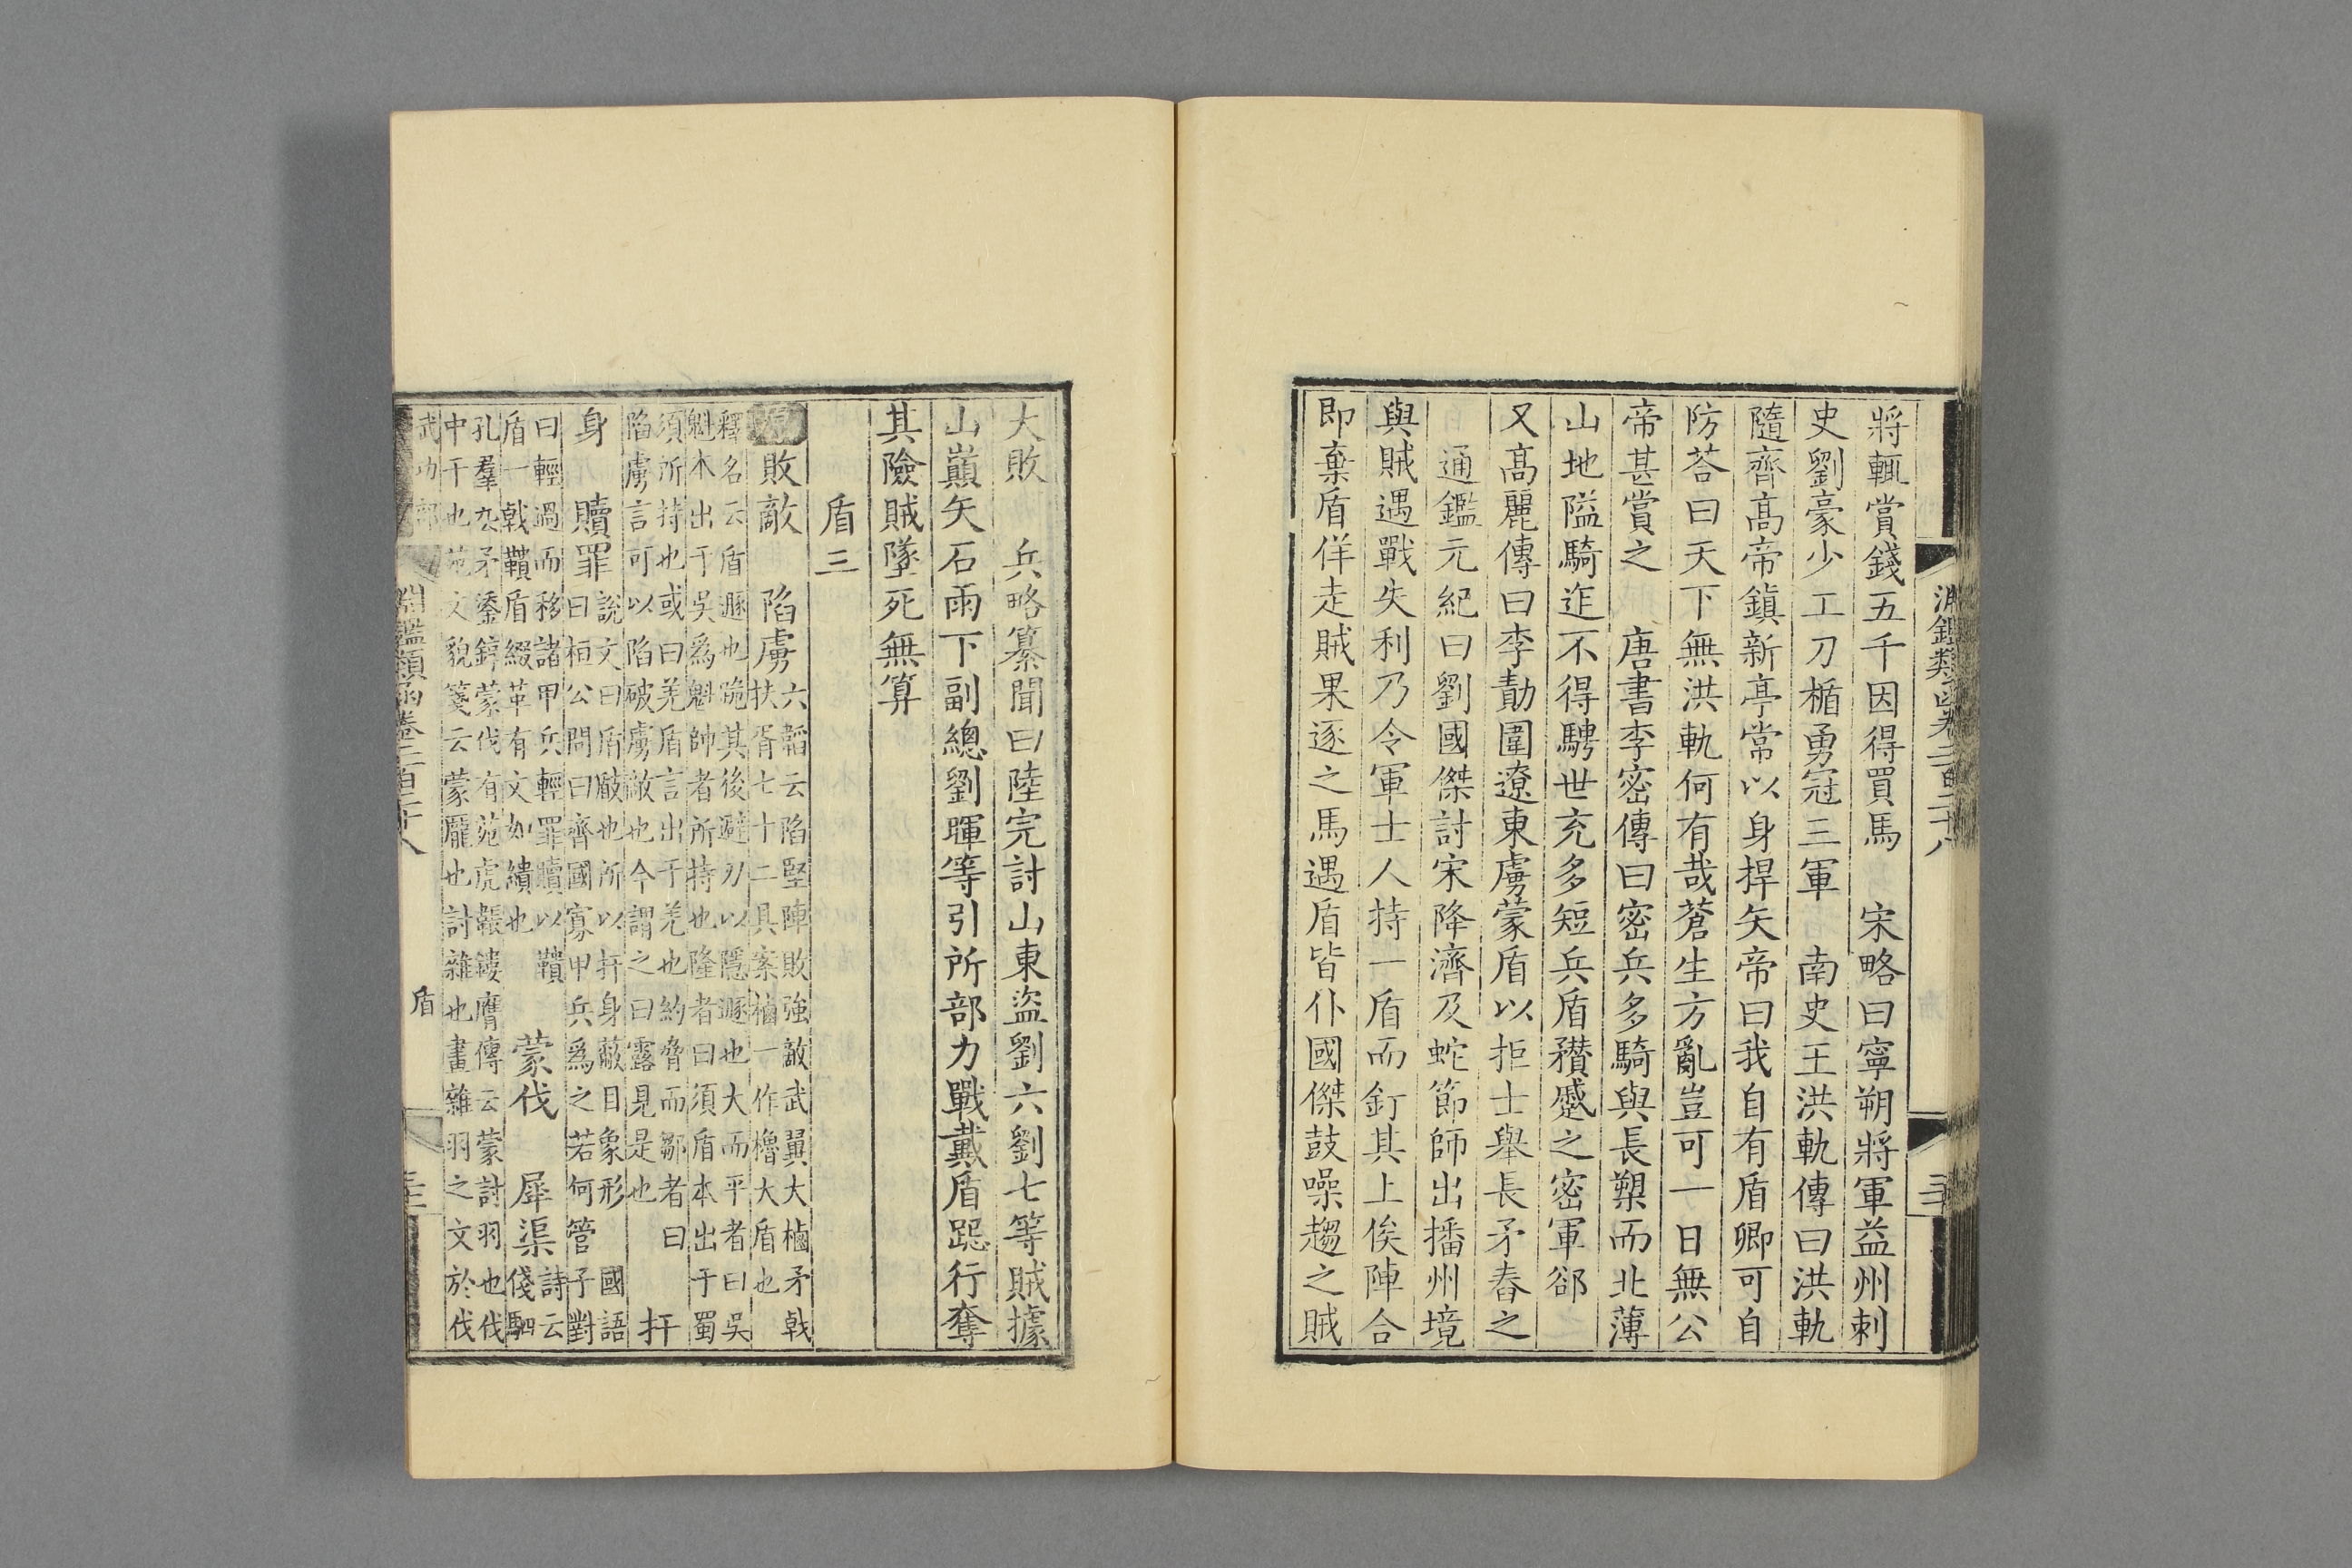 將輒賞錢五千因得買馬　宋略曰寧朔將軍益州刺
史劉豪少工刀楯勇冠三軍　南史王洪軌傳曰洪軌
隨齊高帝鎮新亭常以身捍矢帝曰我自有盾卿可自
防荅曰天下無洪軌何有哉蒼生方亂豈可一日無公
帝甚賞之　唐書李密傳曰密兵多騎與長槊而北薄
山地隘騎迮不得騁世充多短兵盾穳蹙之密軍郤
又高麗傳曰李勣圍遼東虜蒙盾以拒士舉長矛舂之
通鑑元紀曰劉國傑討宋降濟及蛇節師出播州境
與賊遇戰失利乃令軍士人持一盾而釘其上俟陣合
即棄盾佯走賊果逐之馬遇盾皆仆國傑鼓噪趨之賊
大敗　兵略纂聞曰陸完討山東盜劉六劉七等賊據
山巔矢石雨下副總劉暉等引所部力戰戴盾跽行奪
其險賊墜死無算
盾三
敗敵　陷虜六韜云陷堅陣敗強敵武翼大櫓矛戟
扶胥七十二具案櫓一作櫓大盾也
釋名云盾遯也跪其後避刃以隱遯也大而平者曰吳
魁本出于吳爲魁帥者所持也隆者曰須盾本出于蜀
須所持也或曰羌盾言出于羌也約脅而鄒者曰
陷虜言可以陷破虜敵也今謂之曰露見是也　扞
身　贖罪說文曰盾瞂也所以扞身蔽目象形　國語
曰桓公問曰齊國寡甲兵爲之若何管子對
曰輕過而移諸甲兵輕罪贖以鞼　蒙伐　犀渠詩云
盾一戟鞼盾綴革有文如繢也　俴駟
孔羣厹矛鋈錞蒙伐有苑虎韔鏤膺傳云蒙討羽也伐
中干也苑文貌箋云蒙厖也討雜也畫雜羽之文於伐
盾